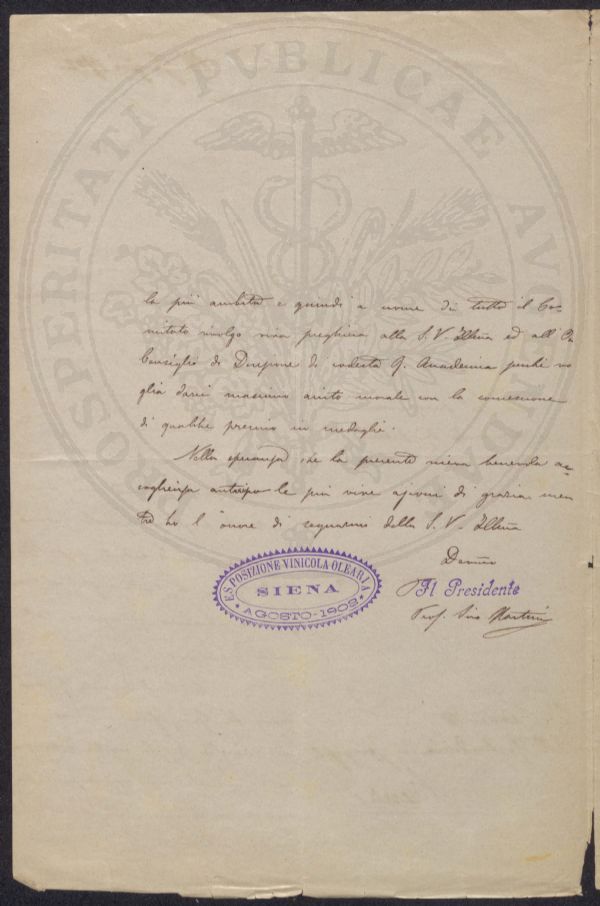 PROSPERITATI PVBLICAE AVGENDAE
la più ambita e quindi a nome di tutto il Co-
mitato rivolgo viva preghiera alla S. V. Illma ed all' On
Consiglio di Direzione di codesta Accademia perchè vo
glia darci massimo aiuto morale con la concessione
di qualche premio in medaglie.
Nella speranza che la presente riceva benevola ac-
coglienza antecipo le più vive azioni di grazia men
tre ho l' onore di segnarmi della S. V. Illma
Devmo
Il Presidente
Prof.
ESPOSIZIONE VINICOLA-OLEARIA
SIENA
AGOSTO-1902